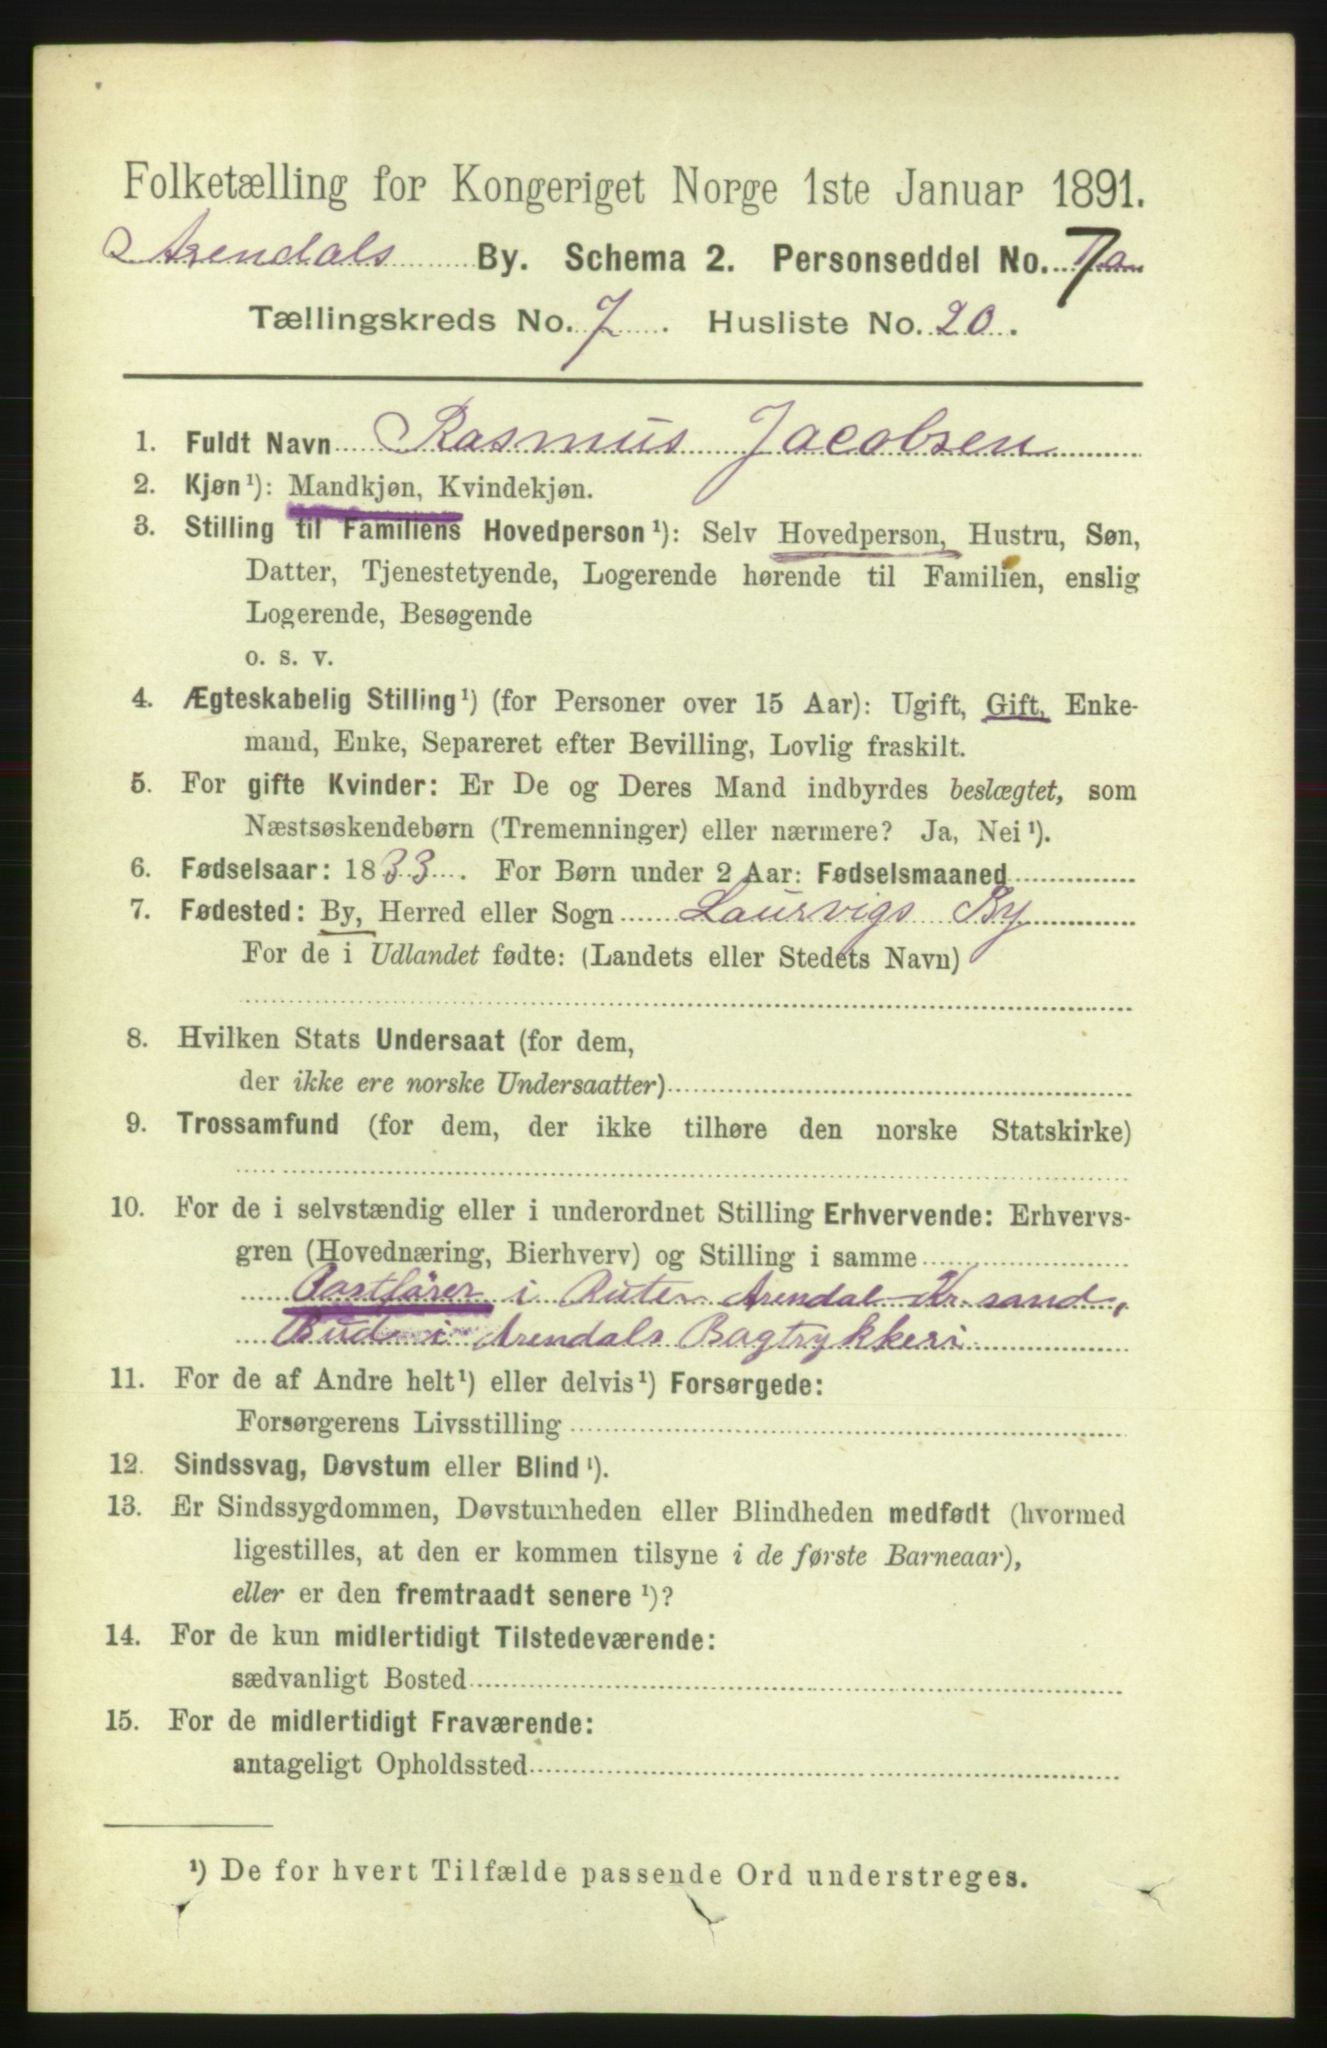 Folketælling for Kongeriget Norge 1ste Januar 1891.
Arendals By. Schema 2. Personseddel No. 7
Tællingskreds No. 7. Husliste No. 20.
1. Fuldt Navn Rasmus Jacobsen
2. Kjøn¹): Mandkjøn, Kvindekjøn.
3. Stilling til Familiens Hovedperson¹): Selv Hovedperson, Hustru, Søn,
Datter, Tjenestetyende, Logerende hørende til Familien, enslig
Logerende, Besøgende
o. s. v.
4. Ægteskabelig Stilling¹) (for Personer over 15 Aar): Ugift, Gift, Enke-
mand, Enke, Separeret efter Bevilling, Lovlig fraskilt.
5. For gifte Kvinder: Er De og Deres Mand indbyrdes beslægtet, som
Næstsøskendebørn (Tremenninger) eller nærmere? Ja, Nei¹).
6. Fødselsaar: 1833. For Børn under 2 Aar: Fødselsmaaned
7. Fødested: By, Herred eller Sogn Laurvigs By
For de i Udlandet fødte: (Landets eller Stedets Navn)
8. Hvilken Stats Undersaat (for dem,
der ikke ere norske Undersaatter)
9. Trossamfund (for dem, der ikke tilhøre den norske Statskirke)
10. For de i selvstændig eller i underordnet Stilling Erhvervende: Erhvervs-
gren (Hovednæring, Bierhverv) og Stilling i samme
Postfører i Ruten Arendal Kr.sand,
Bud i Arendals Bogtrykkeri
11. For de af Andre helt¹) eller delvis¹) Forsørgede:
Forsørgerens Livsstilling
12. Sindssvag, Døvstum eller Blind¹).
13. Er Sindssygdommen, Døvstumheden eller Blindheden medfødt (hvormed
ligestilles, at den er kommen tilsyne i de første Barneaar),
eller er den fremtraadt senere¹)?
14. For de kun midlertidigt Tilstedeværende:
sædvanligt Bosted
15. For de midlertidigt Fraværende:
antageligt Opholdssted
¹) De for hvert Tilfælde passende Ord understreges.